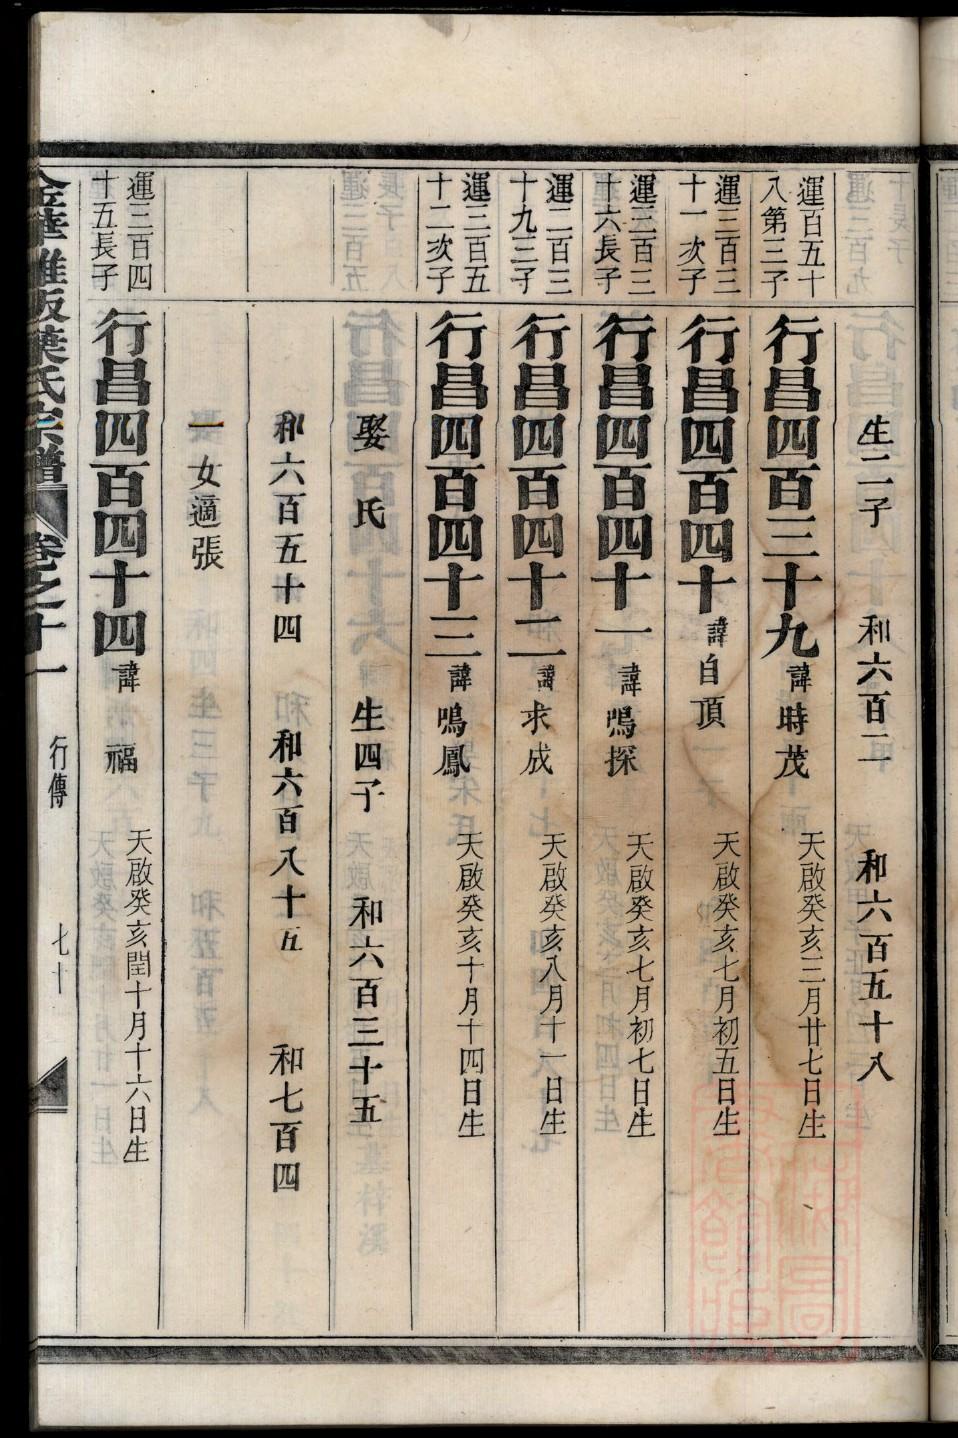 生二子　和六百二　和六百五十八
運百五十
八第三子
行昌四百三十九　諱時茂　天啟癸亥三月廿七日生
運三百三
十一次子
行昌四百四十　諱自頂　天啟癸亥七月初五日生
運三百三
十六長子
行昌四百四十一　諱鳴探　天啟癸亥七月初七日生
運二百三
十九三子
行昌四百四十二　諱求成　天啟癸亥八月十一日生
運三百五
十二次子
行昌四百四十三　諱鳴鳳　天啟癸亥十月十四日生
娶　氏　生四子　和六百三十五
和六百五十四　和六百八十五　和七百四
一女適張
運三百四
十五長子
行昌四百四十四　諱　福　天啟癸亥閏十月十六日生
金華雅畈葉氏宗譜　卷之十一　行傳　七十